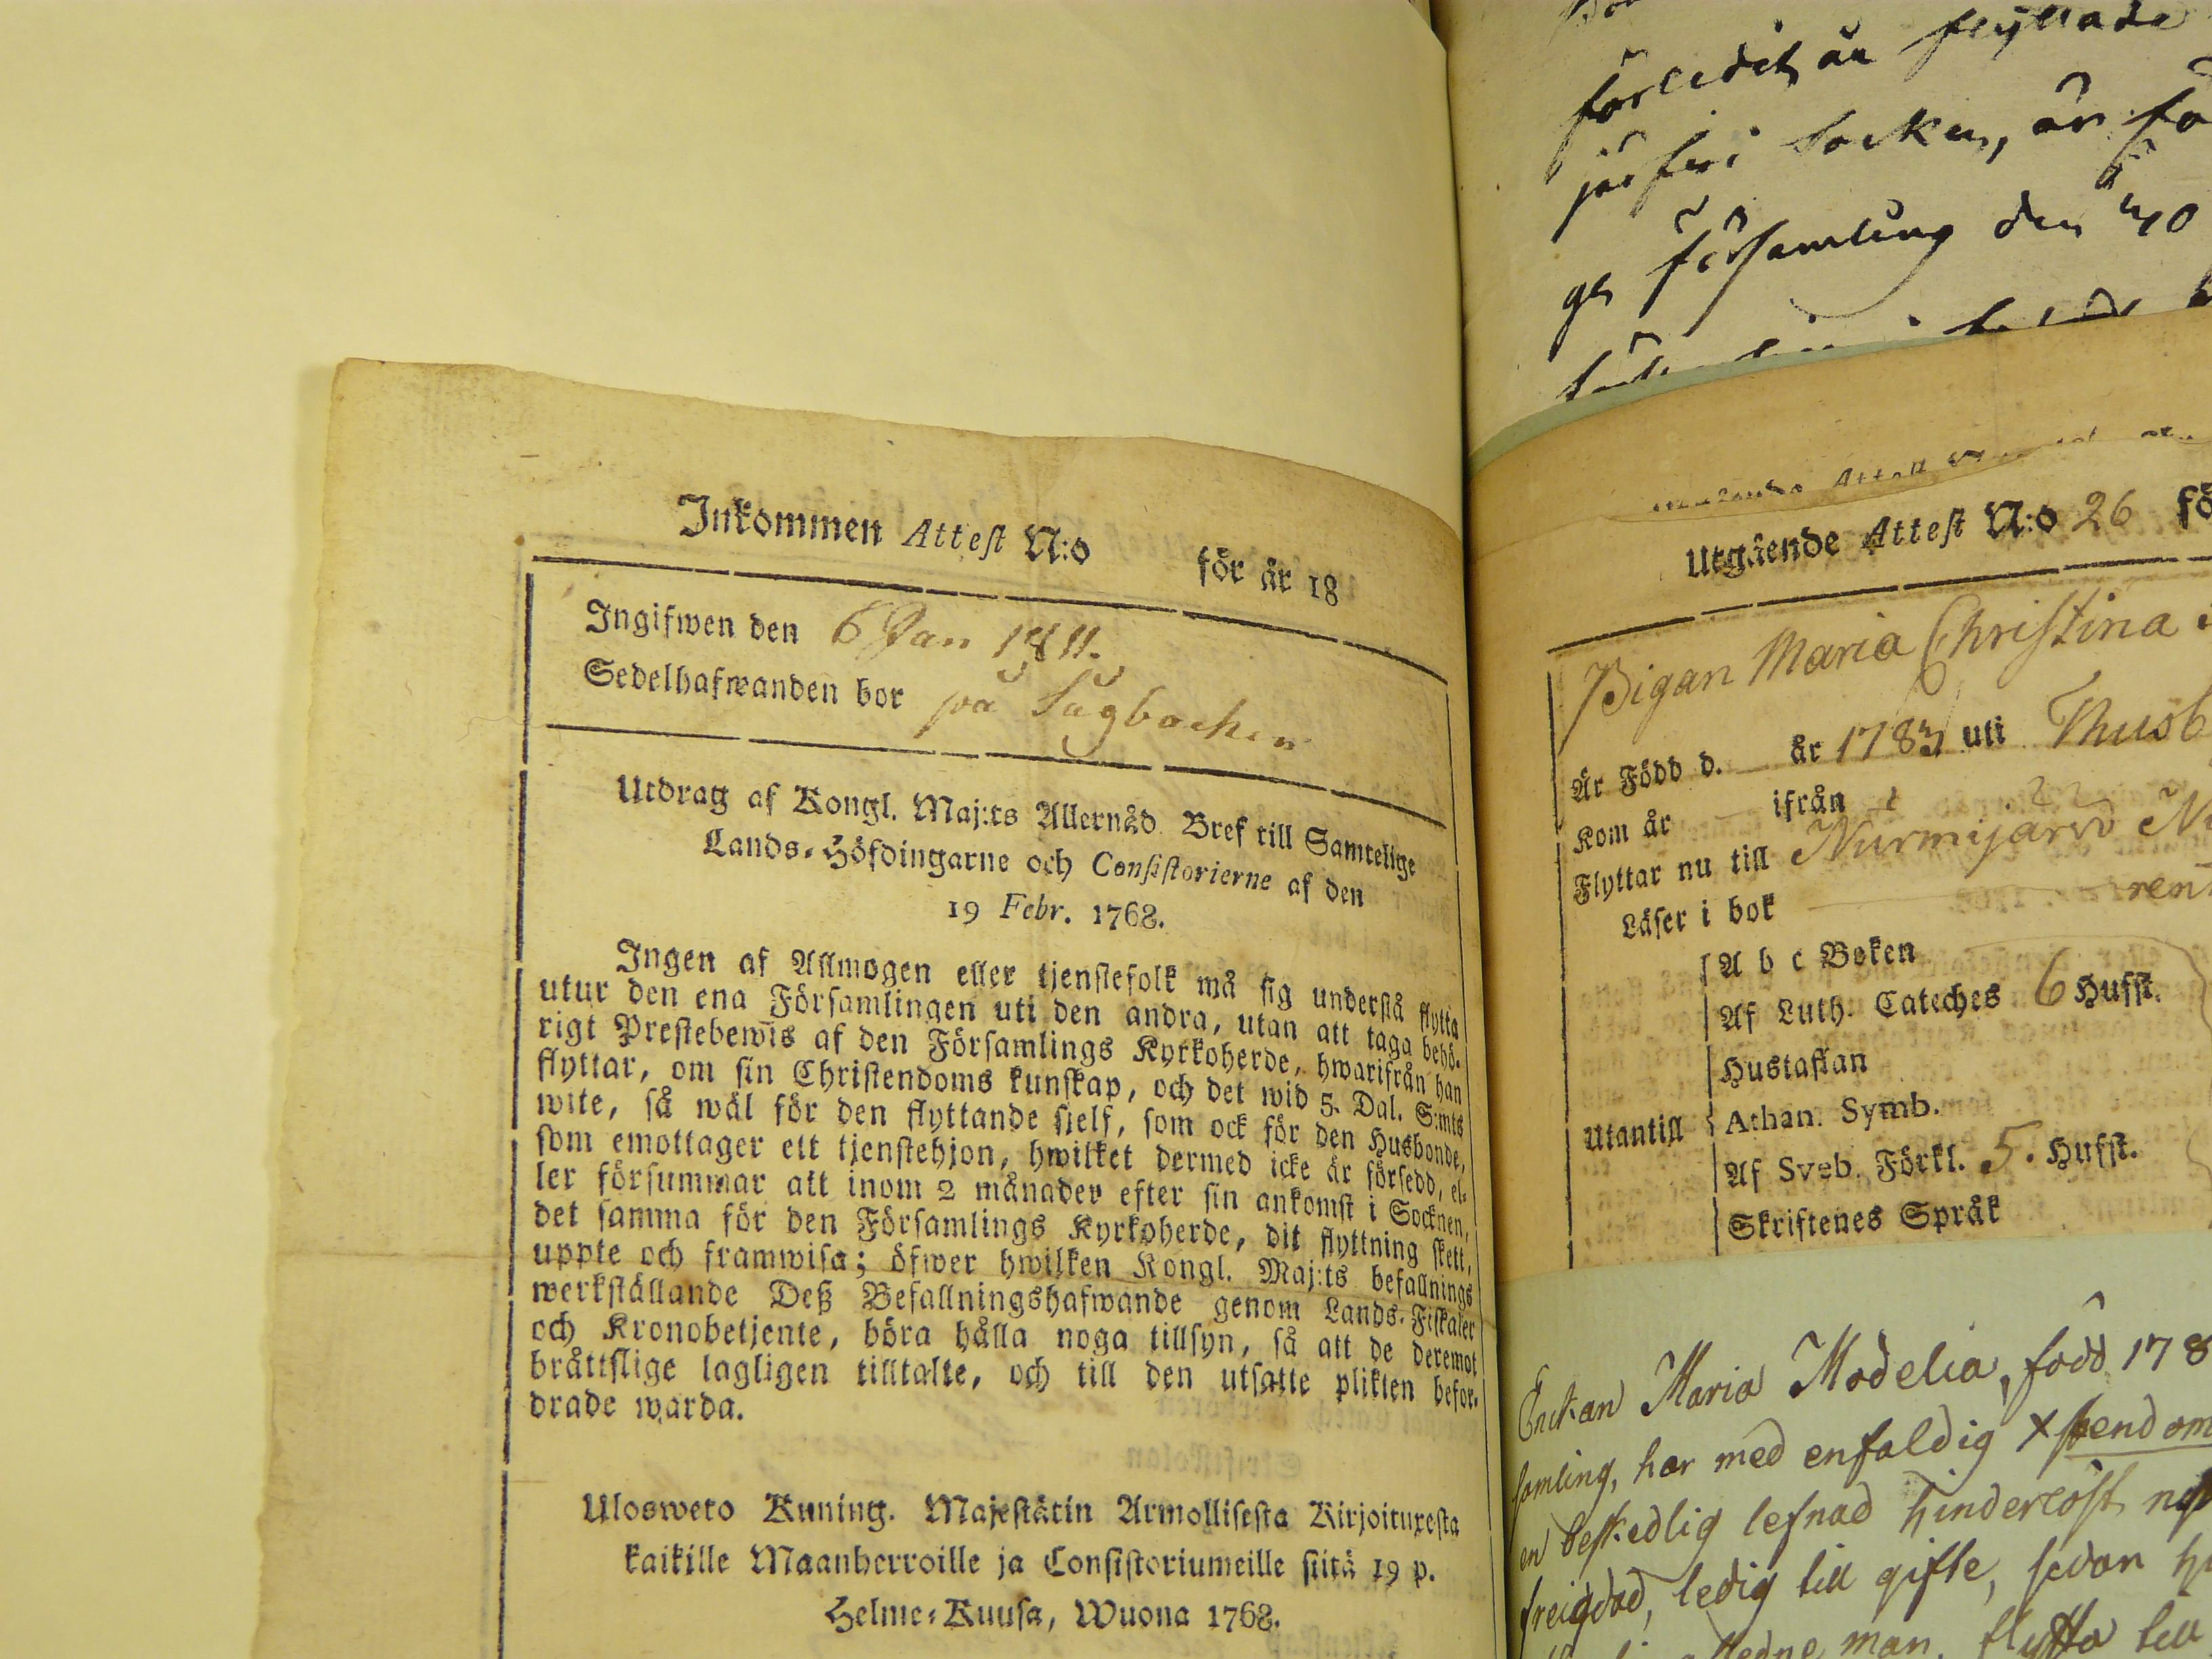 Inkommen Attest N:o för år 18
Ingifwen den 6 Jan 1811.
Sedelhafwanden bor på Sågbacken
Utdrag af Kongl. Maj:ts Allernåd. Bref till Samtelige
Lands-Höfdingarne och Consistorierne af den
19 Febr. 1768.
Ingen af Allmogen eller tjenstefolk må sig understå flytta
utur den ena Församlingen uti den andra, utan att taga behö-
rigt Prestebewis af den Församlings Kyrkoherde, hwarifrån han
flyttar, om sin Christendoms kunskap, och det wid 5. Dal. S:mts
wite, så wäl för den flyttande sjelf, som ock för den Husbonde,
som emottager ett tjenstehjon, hwilket dermed icke är försedd, el-
ler försummar att inom 2 månader efter sin ankomst i Socknen,
det samma för den Församlings Kyrkoherde, dit flyttning skett,
uppte och framwisa; öfwer hwilken Kongl. Maj:ts befallnings
werkställande Deß Befallningshafwande genom Lands-Fiskaler
och Kronobetjente, böra hålla noga tillsyn, så att de deremot
bråttslige lagligen tilltalte, och till den utsatte plikten befor-
drade warda.
Ulosweto Kuning. Majestätin Armollisesta Kirjoituxesta
kaikille Maanherroille ja Consistoriumeille siitä 19 p.
Helme-Kuusa, Wuona 1768.
förledit år flyttade
socken, är fö
ge församling den
Attest
Utgående Attest N:o 26 fö
Pigan Maria Christina
Är Född d. år 1783 uti Thusb
Kom år ifrån
Flyttar nu till Nurmijärvi N
Läser i bok ren
A b c Boken
Af Luth. Cateches 6 Hufst.
Hustaflan
Utantill Athan. Symb.
Af Sveb. Förkl. 5. Hufst.
Skriftenes Språk
Enckan Maria Modelia, född 178
samling, har med enfaldig xstendom
en beskedlig lefnad hinderlöst
freigdad, ledig till gifte, sedan
man, flytta till